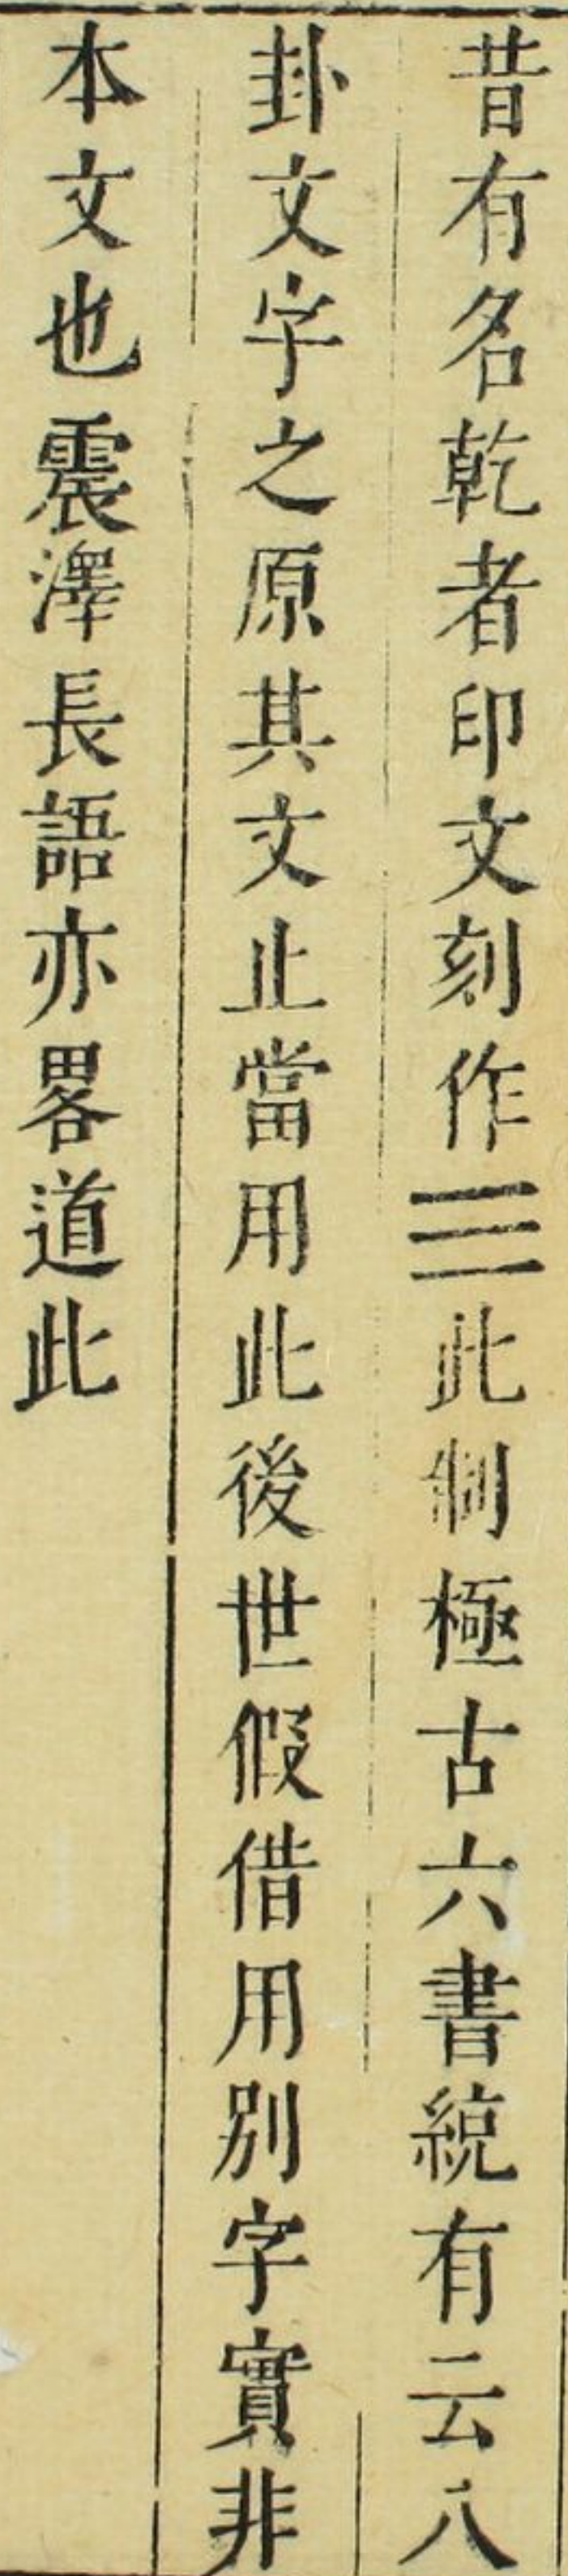 昔有名乾者印文刻作☰此制極古六書統有云八
卦文字之原其文止當用此後世假借用別字實非
本文也震澤長語亦畧道此